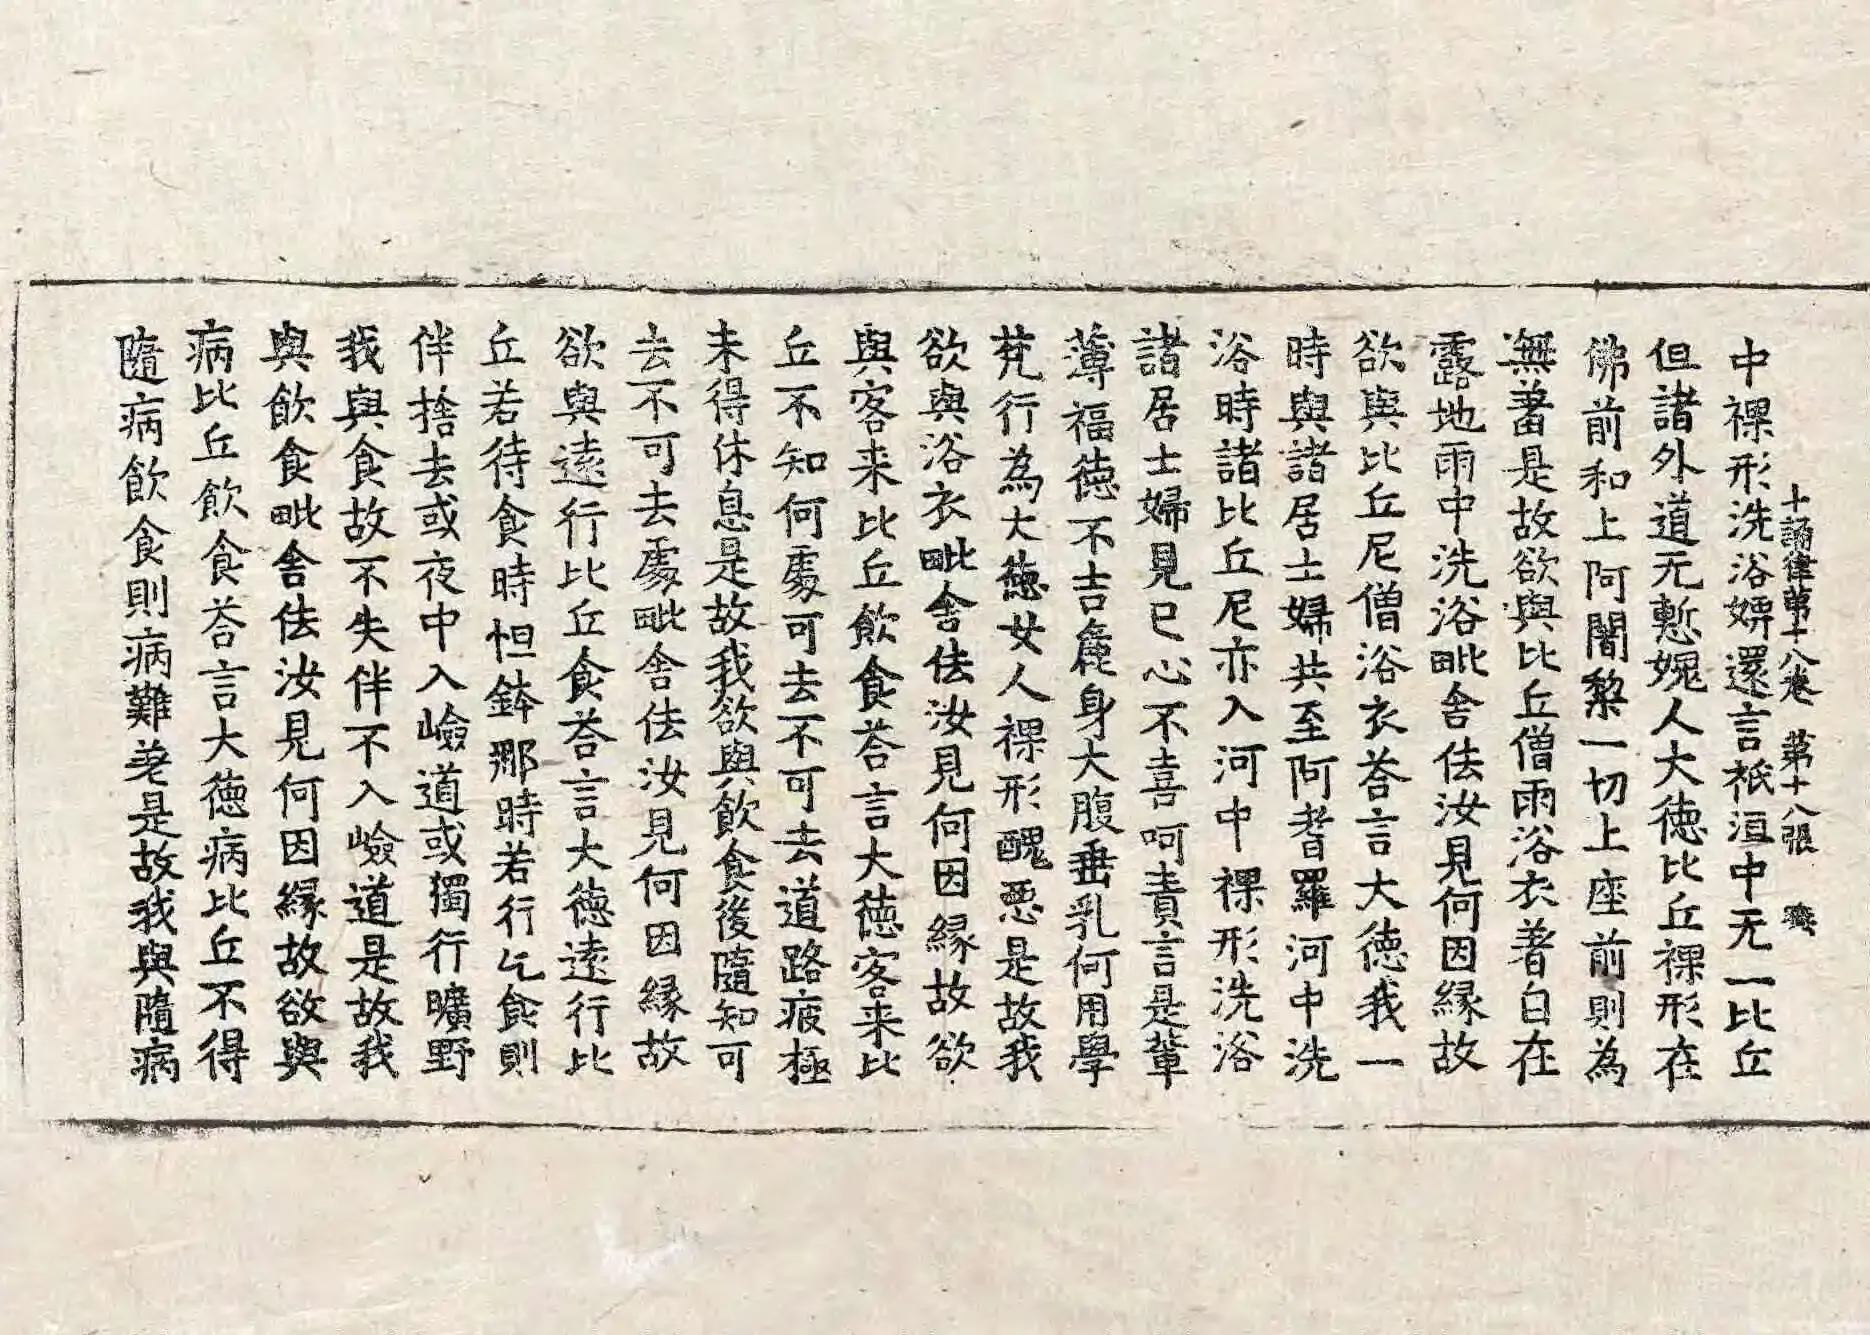 十誦律第十八卷 第十八張
中裸形洗浴婢還言祇洹中无一比丘
但諸外道无慙愧人大徳比丘裸形在
佛前和上阿闍梨一切上座前則為
無羞是故欲與比丘僧雨浴衣著自在
露地雨中洗浴毗舍佉汝見何因緣故
欲與比丘尼僧浴衣荅言大徳我一
時與諸居士婦共至阿耆羅河中洗
浴時諸比丘尼亦入河中裸形洗浴
諸居士婦見已心不喜呵責言是輩
薄福徳不吉麁身大腹垂乳何用學
梵行為大徳女人裸形醜惡是故我
欲與浴衣毗舍佉汝見何因緣故欲
與客来比丘飲食荅言大徳客来比
丘不知何處可去不可去道路疲極
未得休息是故我欲與飲食後隨知可
去不可去處毗舍佉汝見何因緣故
欲與遠行比丘食荅言大徳遠行比
丘若待食時怛鉢那時若行乞食則
伴捨去或夜中入嶮道或獨行曠野
我與食故不失伴不入嶮道是故我
與飲食毗舍佉汝見何因緣故欲與
病比丘飲食荅言大徳病比丘不得
隨病飲食則病難差是故我與隨病